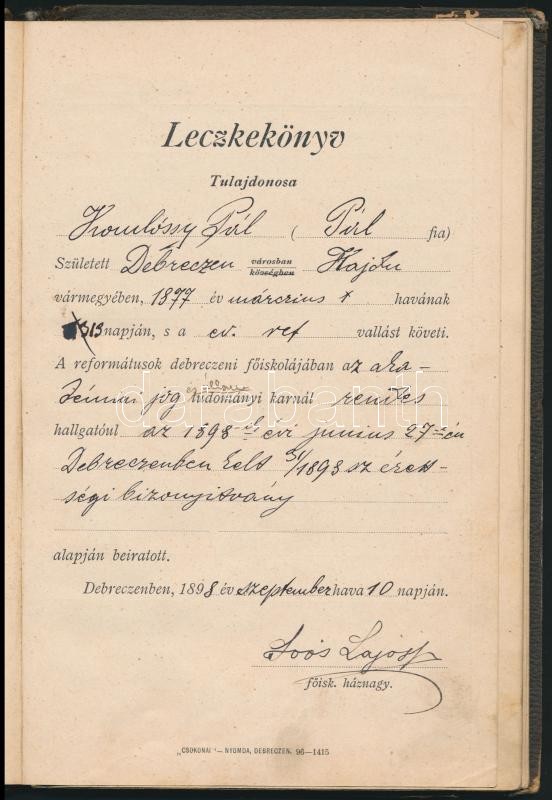 Leczkekönyv
Tulajdonosa
Komlóssy Pál ( Pál fia)
Született Debreczen városban községben Hajdu
vármegyében, 1877 év márczius havának
13 napján, s a ev. ref vallást követi.
A reformátusok debreczeni főiskolájában az aka-
démiai jog és állam tudományi karnál rendes
hallgatóul az 1898-ik évi junius 27-én
Debreczenben kelt 31/1898 sz érett-
ségi bizonyitvány
alapján beiratott.
Debreczenben, 1898 év szeptember hava 10 napján.
Soós Lajos
főisk. háznagy.
„CSOKONAI"— NYOMDA, DEBRECZEN. 96—1415
databanth